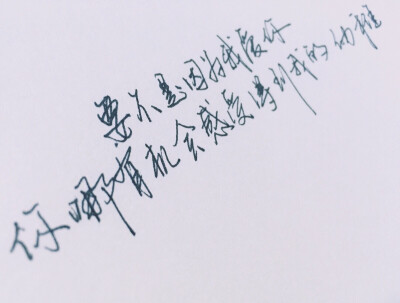 要不是因为我爱你
你哪有机会感受得到我的幼稚